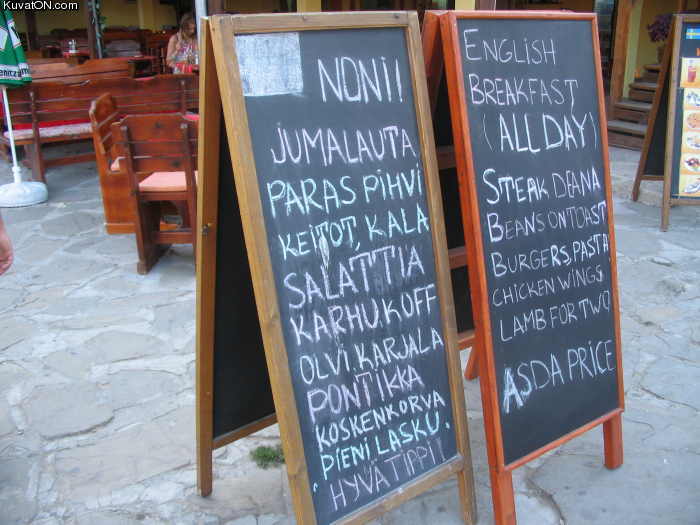 KuvatON.com
NONI!
JUMALAUTA
PARAS PIHVI
KEITOT, KALA
SALATTIA
KARHU KOFF
OLVI, KARJALA
PONTIKKA
KOSKENKORVA
PIENI LASKU.
HYVÄ TIPPI!
ENGLISH
BREAKFAST
(ALL DAY)
STEAK DEANA
BEANS ON TOAST
BURGERS, PASTA
CHICKEN WINGS
LAMB FOR TWO
ASDA PRICE